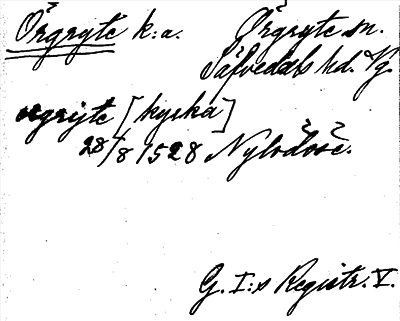 Örgryte k:a. Örgryte sn.
Säfvedals hd. Vg.
örgryte [kyrka]
28/8 1528 Nylödöse.
G. I:s Registr. V.